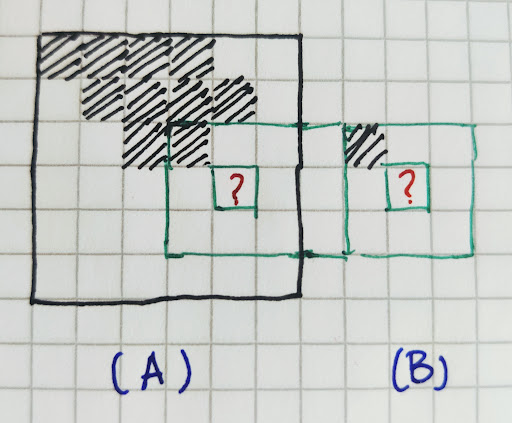 ? ?
(A) (B)